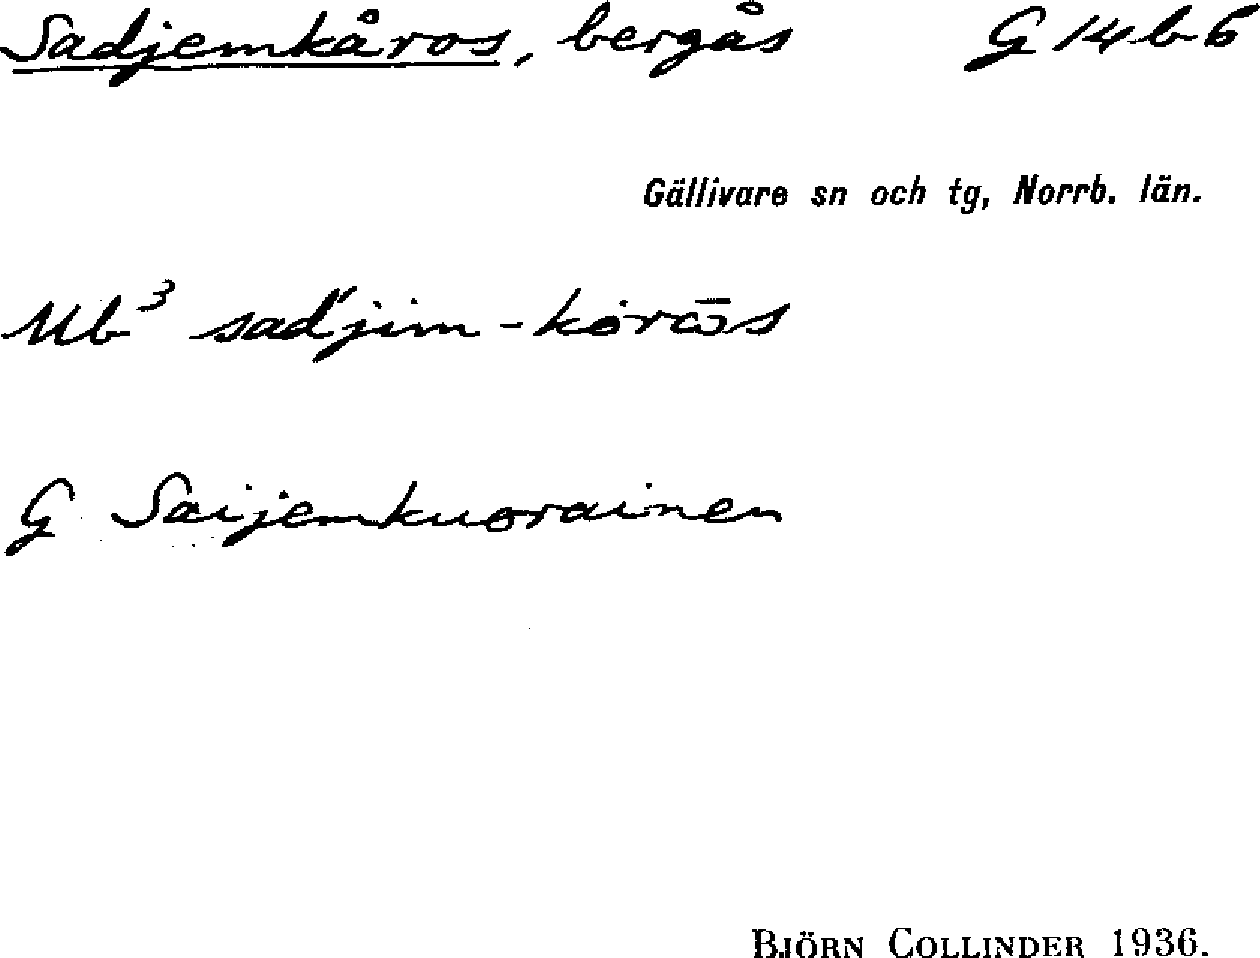 Sadjemkåros, bergås G 14 b 6
Gällivare sn och tg, Norrb. län.
Ub³ sad'jim-kȯrās
G Saijemkuorainen
BJÖRN COLLINDER 1936.